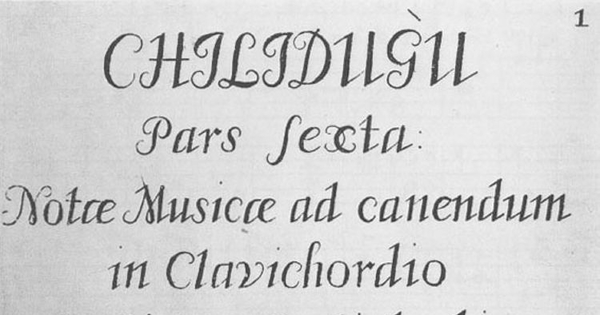 1
CHILIDUG̀U
Pars ſexta:
Notæ Musicæ ad canendum
in Clavichordio